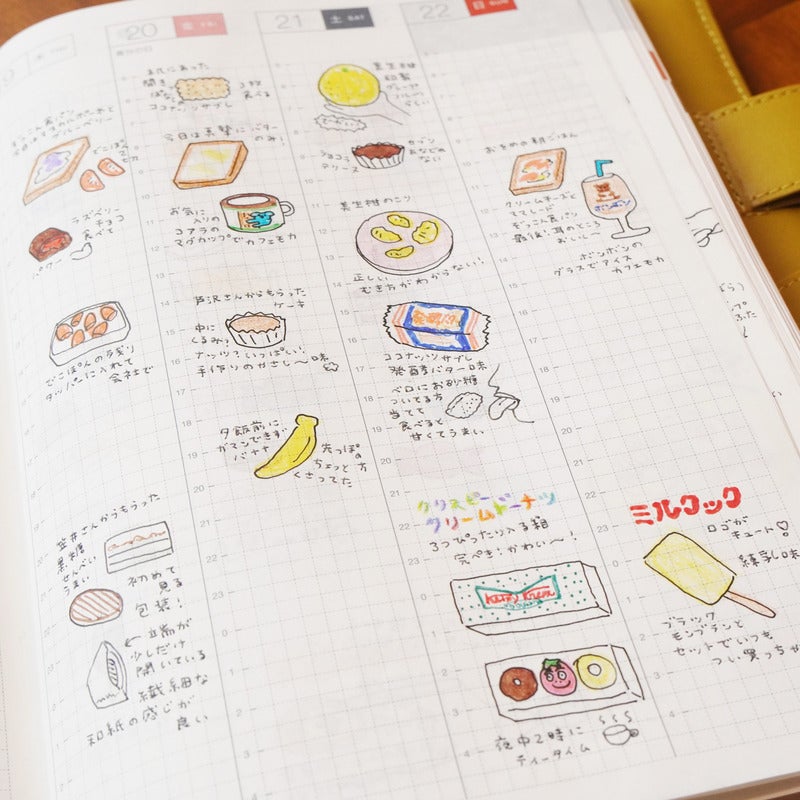 20
金 FRI
21
土 SAT
22
日 SUN
木 THU
ブルーベリー
でこぽん
ラズベリー
チョコ
食べて
パクッ
でこぽんの残り
タッパーに入れて
会社で
笠井さんからもらった
黒糖
せんべい
うまい
初めて
見る
包装!
← 立端が
少しだけ
開いている
繊細な
和紙の感じが
良い
まえにあった
3枚
食べる
ココナッツサブレ
今日は真撃にバター
のみ!
お気に
入りの
コアラの
マグカップでカフェモカ
芦沢さんからもらった
ケーキ
中に
くるみ?
ナッツ?いっぱい!
手作りのやさし〜味
夕飯前に
ガマンできず
バナナ
先っぽの
ちょっと方
くさってた
グレープ
フルーツ
くらい
ショコラ
テリーヌ
セブン
あなどれ
ない
美生柑のこり
正しい
むき方がわからない!
発酵バター
ココナッツサブレ
発酵バター味
ベロにお砂糖
ついてる方
当てて
食べると
甘くてうまい
クリスピードーナツ
クリームドーナツ
3つぴったり入る箱
完ぺき!かわい〜!
Krispy Kreme
夜中2時に
ティータイム
おそめの朝ごはん
クリームチーズと
ぞっこん食パン
最後に耳のところ
おいし〜
ボンボン
ボンボンの
グラスでアイス
カフェモカ
ミルクック
ロゴが
キュート♡
練乳味
ブラック
モンブランと
セットでいつも
つい買っちゃ